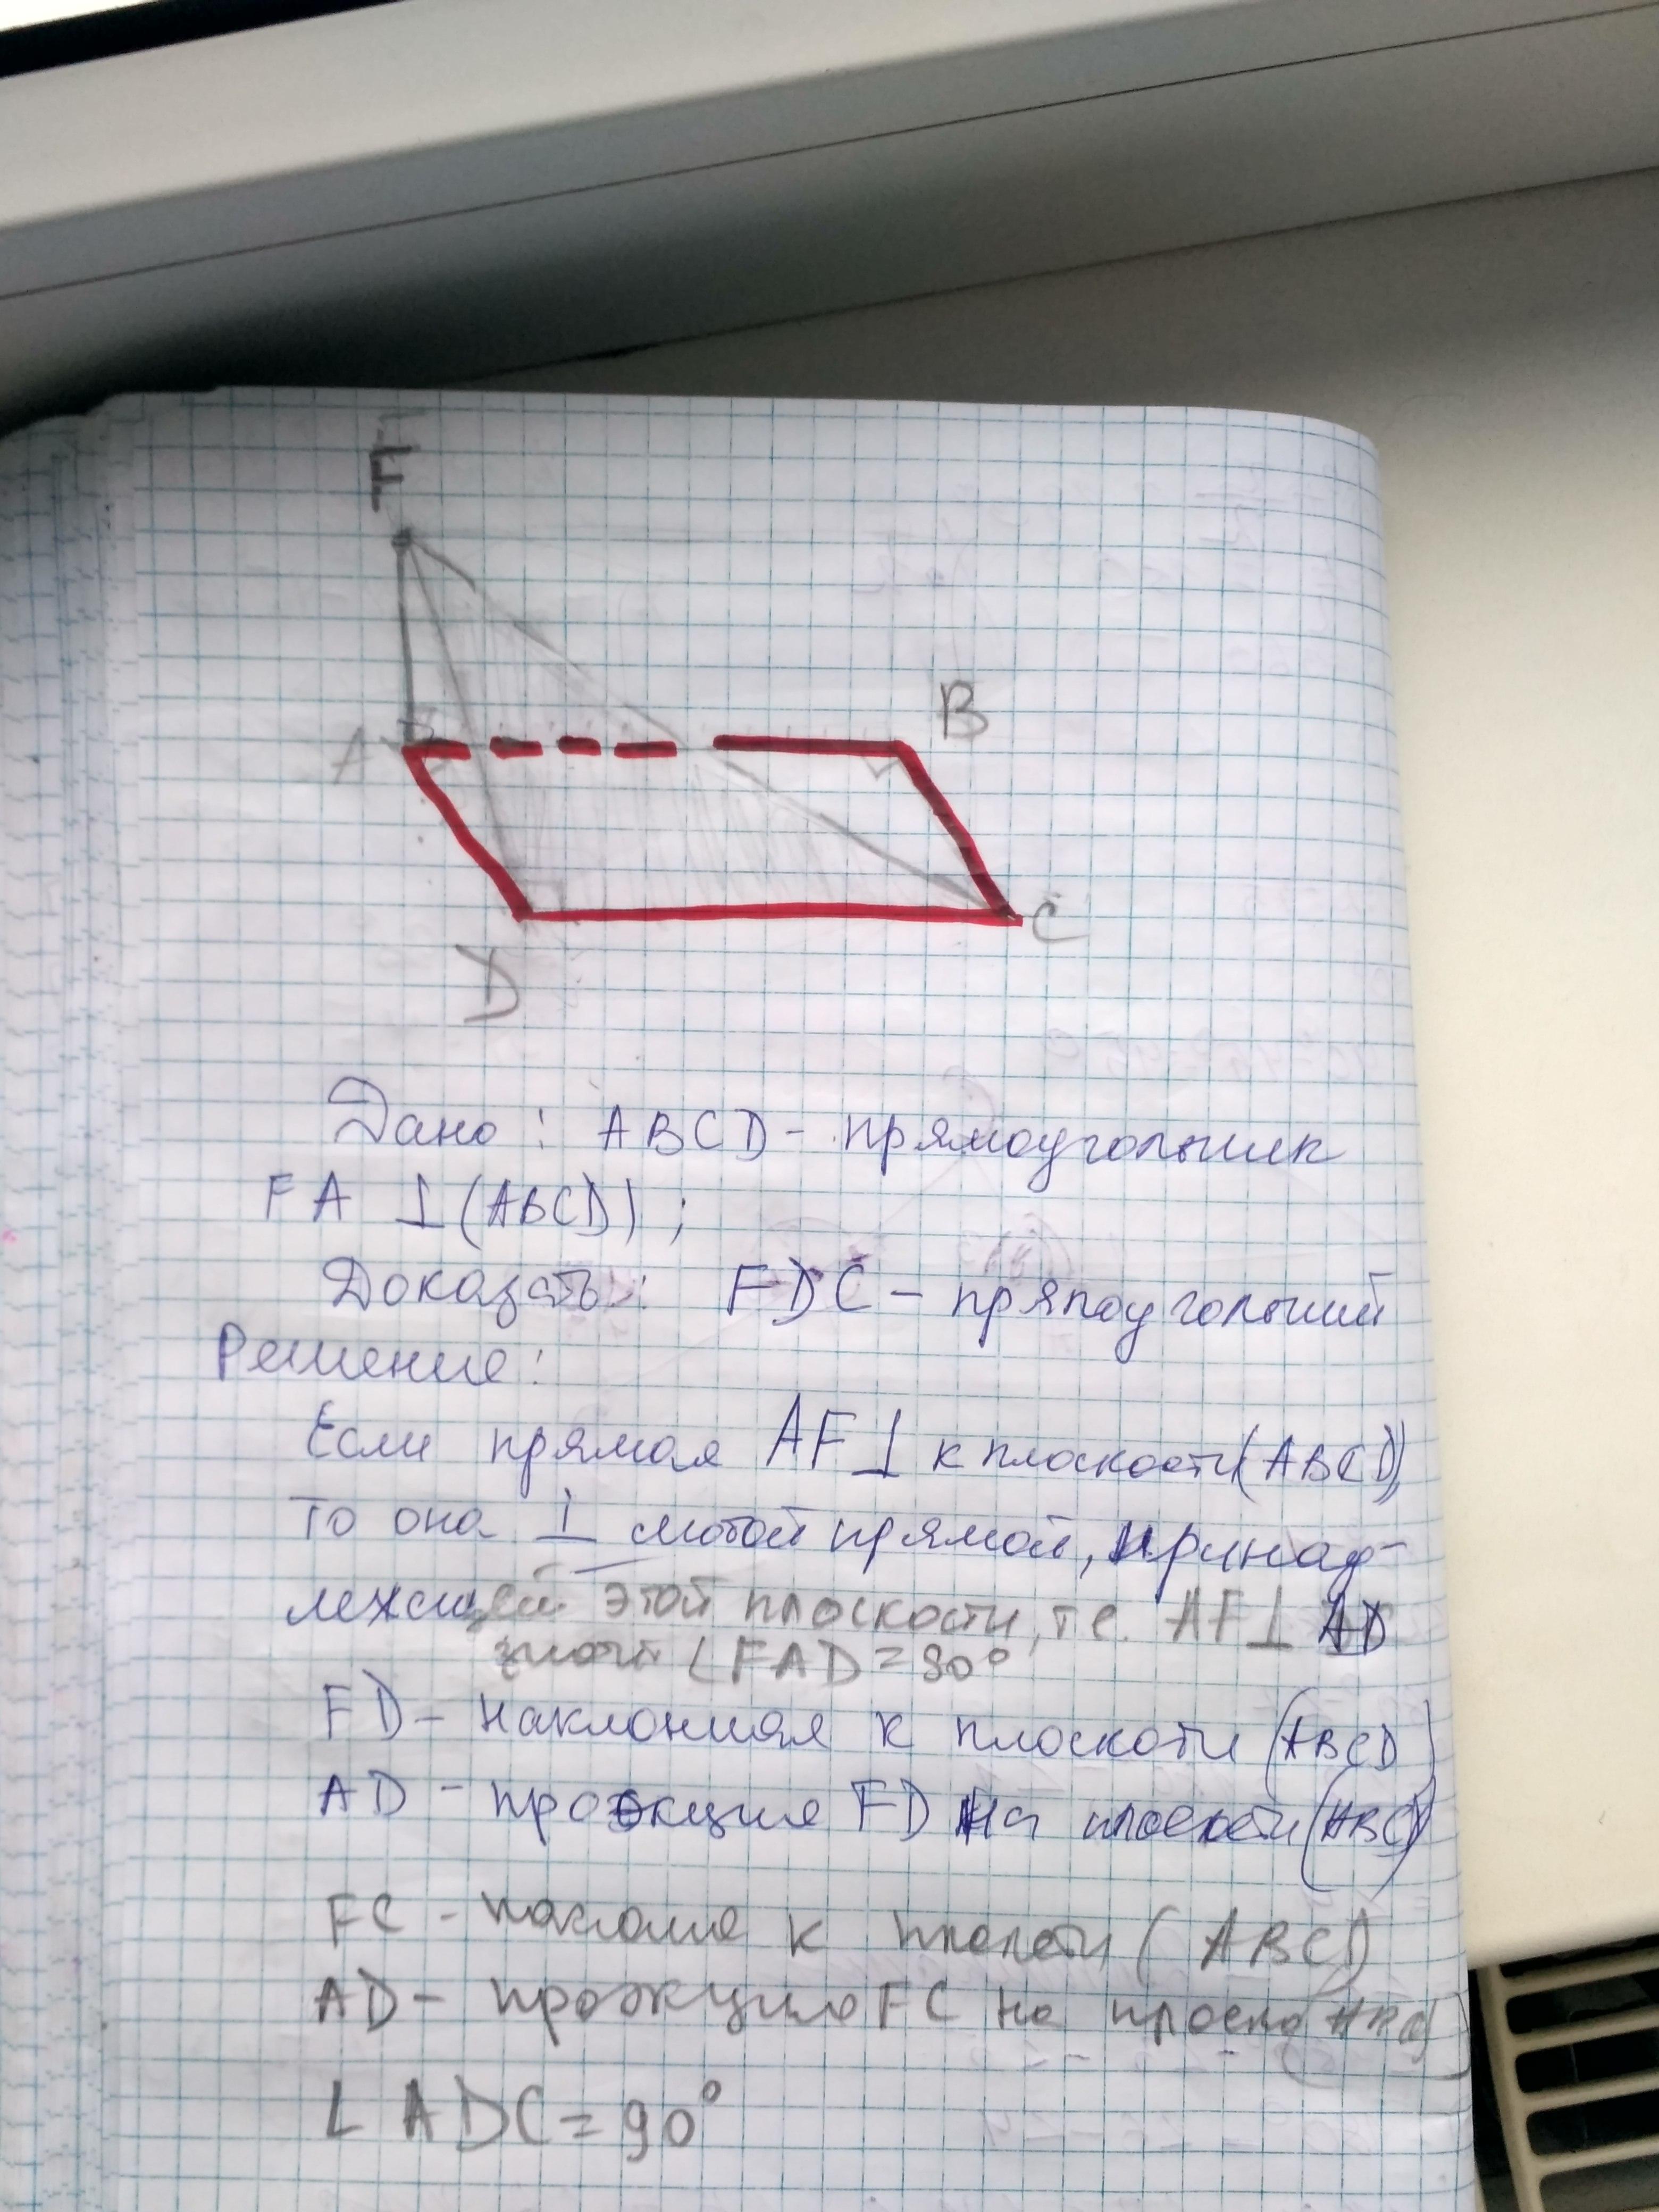 F
A
B
C
D
Дано: ABCD - прямоугольник
FA ⊥ (ABCD);
Доказать: FDC - прямоугольный
Решение:
Если прямая AF ⊥ к плоскости (ABCD),
то она ⊥ любой прямой, принад-
лежащей этой плоскости, т.е. AF ⊥ AD
значит ∠FAD = 90°
FD - наклонная к плоскоти (ABCD)
AD - проэкция FD на плоскости (ABC)
FC - к (ABCD)
AD - проэкцию FC на
∠ADC = 90°